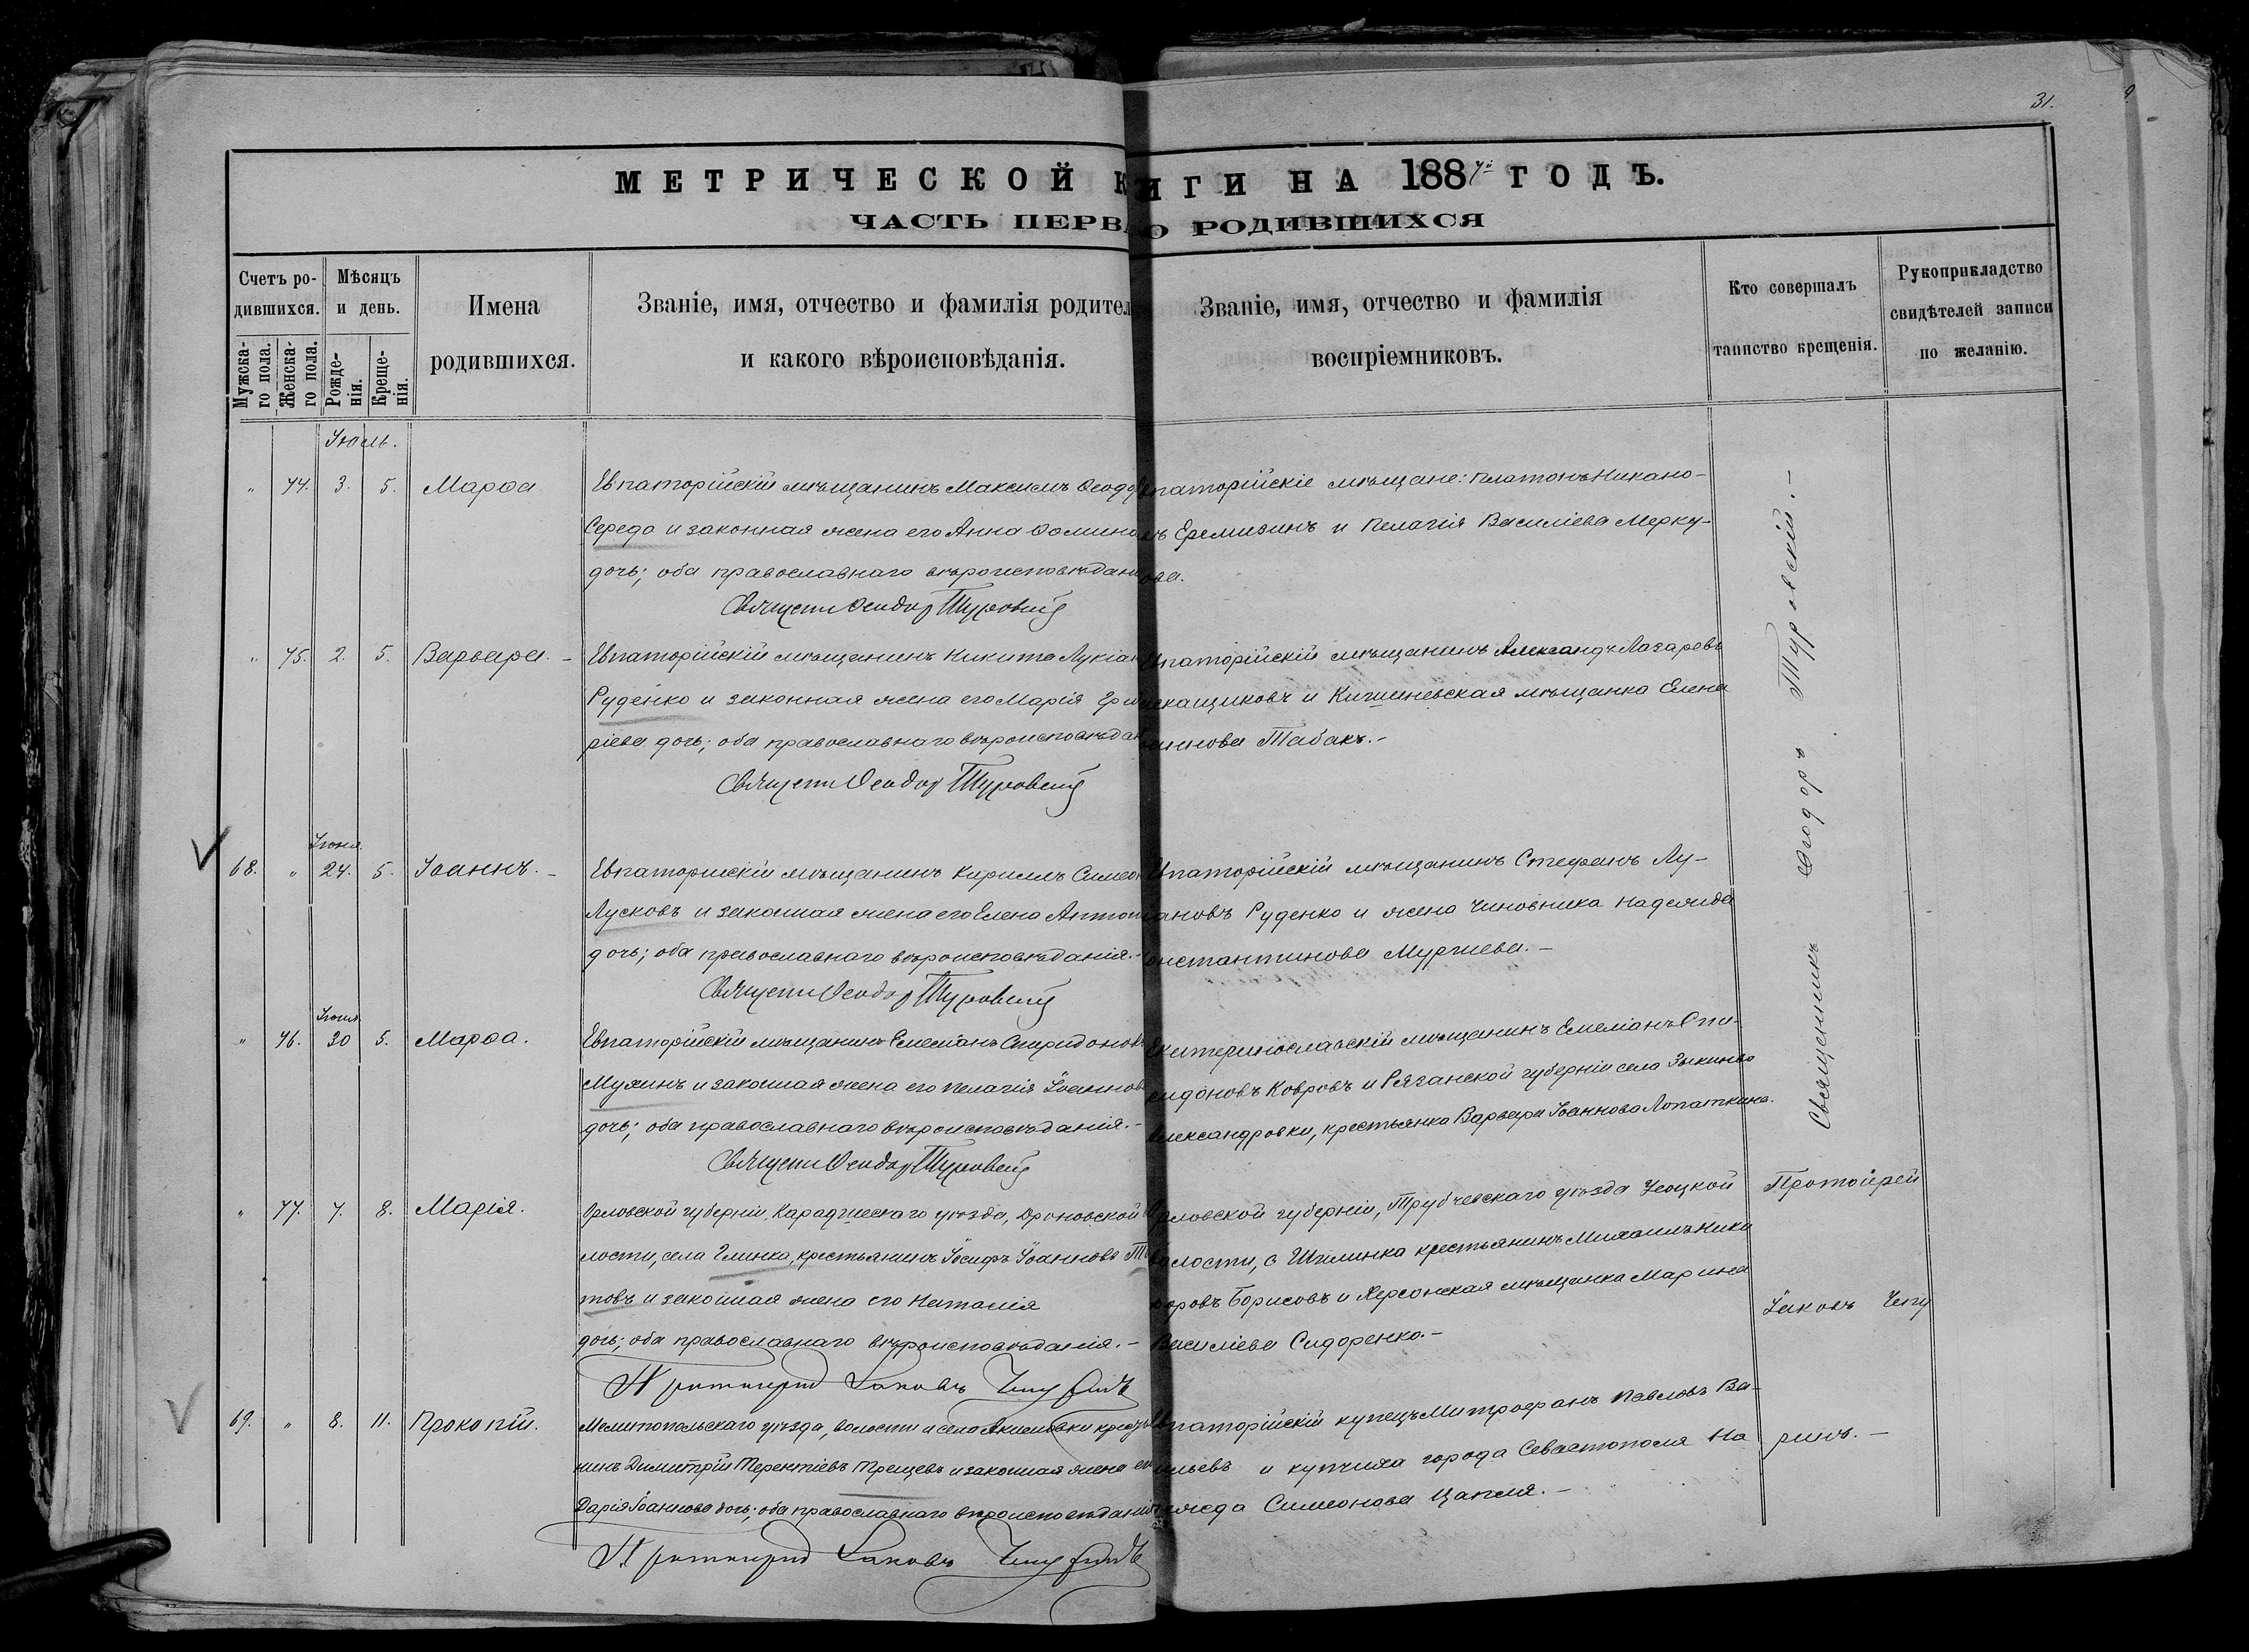 31.
МЕТРИЧЕСКОЙ К
ИГИ НА 1887й ГОДЪ.
ЧАСТЬ ПЕРВА
О РОДИВШИХСЯ
Счетъ ро-
дившихся.
Мужска-
го пола.
Женска-
го пола.
Мѣсяцъ
и день.
Рожде-
нія.
Креще-
нія.
Имена
родившихся.
Званіе, имя, отчество и фамилія родител
и какого вѣроисповѣданія.
Званіе, имя, отчество и фамилія
воспріемниковъ.
Кто совершалъ
таинство крещенія.
Рукоприкладство
свидѣтелей записи
по желанію.
Іюль.
" 74. 3. 5. Марѳа
Евпаторійскій мѣщанинъ Максимъ Ѳеодо
Середа и законная жена его Анна Ѳомина
дочь; оба православнаго вѣроисповѣдан
Священ Ѳеодор Туровскій
паторійскіе мѣщане: Платонъ Никано-
ъ Еремизинъ и Пелагія Василіева Мерку-
ова.
" 75. 2. 5. Варвара. –
Евпаторійскій мѣщанинъ Никита Лукіан
Руденко и законная жена его Марія Гри
ріева дочь; оба православнаго вѣроисповѣдан
Священ Ѳеодор Туровскій
паторійскій мѣщанинъ Александъ Лазаревъ
скащиковъ и Кишиневская мѣщанка Елена
аннова Табакъ. –
Іюня
68. " 24. 5. Іоаннъ. –
Евпаторійскій мѣщанинъ Кириллъ Симео
Лусковъ и законная жена его Елена Антон
дочь; оба православнаго вѣроисповѣданія. –
Священ Ѳеодор Туровскій
паторійскій мѣщанинъ Стефанъ Лу-
ановъ Руденко и жена чиновника Надежда
онстантинова Мургиева. –
Іюня
" 76. 30 5. Марѳа.
Евпаторійскій мѣщанинъ Емеліанъ Спиридонов
Мухинъ и законная жена его Пелагія Іоаннов
дочь; оба православнаго вѣроисповѣданія. –
Священ Ѳеодор Туровскій
Екатеринославскій мѣщанинъ Емеліанъ Спи-
ридоновъ Ковровъ и Рязанской губерніи села Зыкинво
Александровки, крестьянка Варвара Іоаннова Лопаткина.
Священникъ Ѳеодоръ Туровскій. –
" 77. 7. 8. Марія.
Орловской губерніи, Карачевскаго уѣзда, Дроновской
лости, села Глинка, крестьянинъ Іосифъ Іоанновъ Ти
товъ и законная жена его Наталія
дочь; оба православнаго вѣроисповѣданія. –
Протоіерей Іаковъ Чепуринъ
рловской губерніи, Трубчевскаго уѣзда
волости, с крестьянинъ Михаилъ Ники
форовъ Борисовъ и Херсонская мѣщанка Марина
Василіева Сидоренко. –
Протоіерей
Іаковъ Чепу
ринъ. –
69. " 8. 11. Прокопій.
Мелитопольскаго уѣзда, волости и села Акимовки крестья
нинъ Димитрій Терентіевъ Трещевъ и законная жена ег
Дарія Іоаннова дочь; оба православнаго вѣроисповѣдані
Протоіерей Іаковъ Чепуринъ
паторійскій купецъ Митрофанъ Павловъ Ва-
ильевъ и купчиха города Севастополя На
жда Симеонова Цапля. –